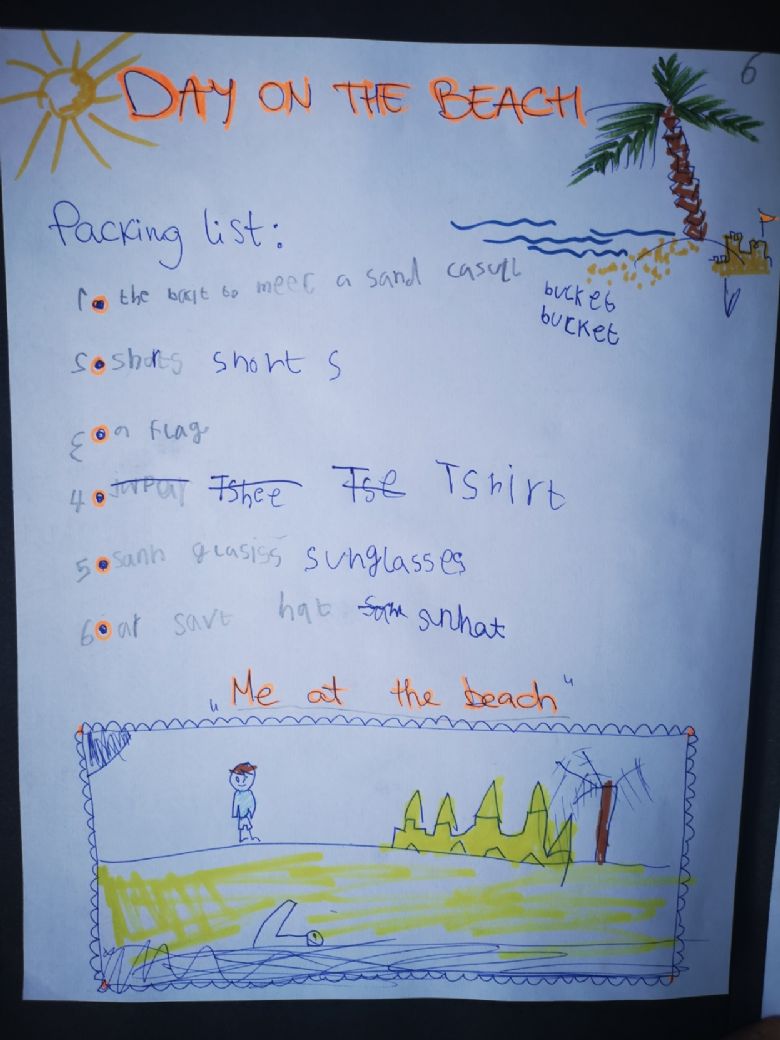 6
DAY ON THE BEACH
Packing list:
1 the bucit to meec a sand casull
bucket
bucket
S shorts short s
3 a flag
4 Tshee Tse Tshirt
5 sann glasiss sunglasses
6 ar savt hat sunhat
„Me at the beach"